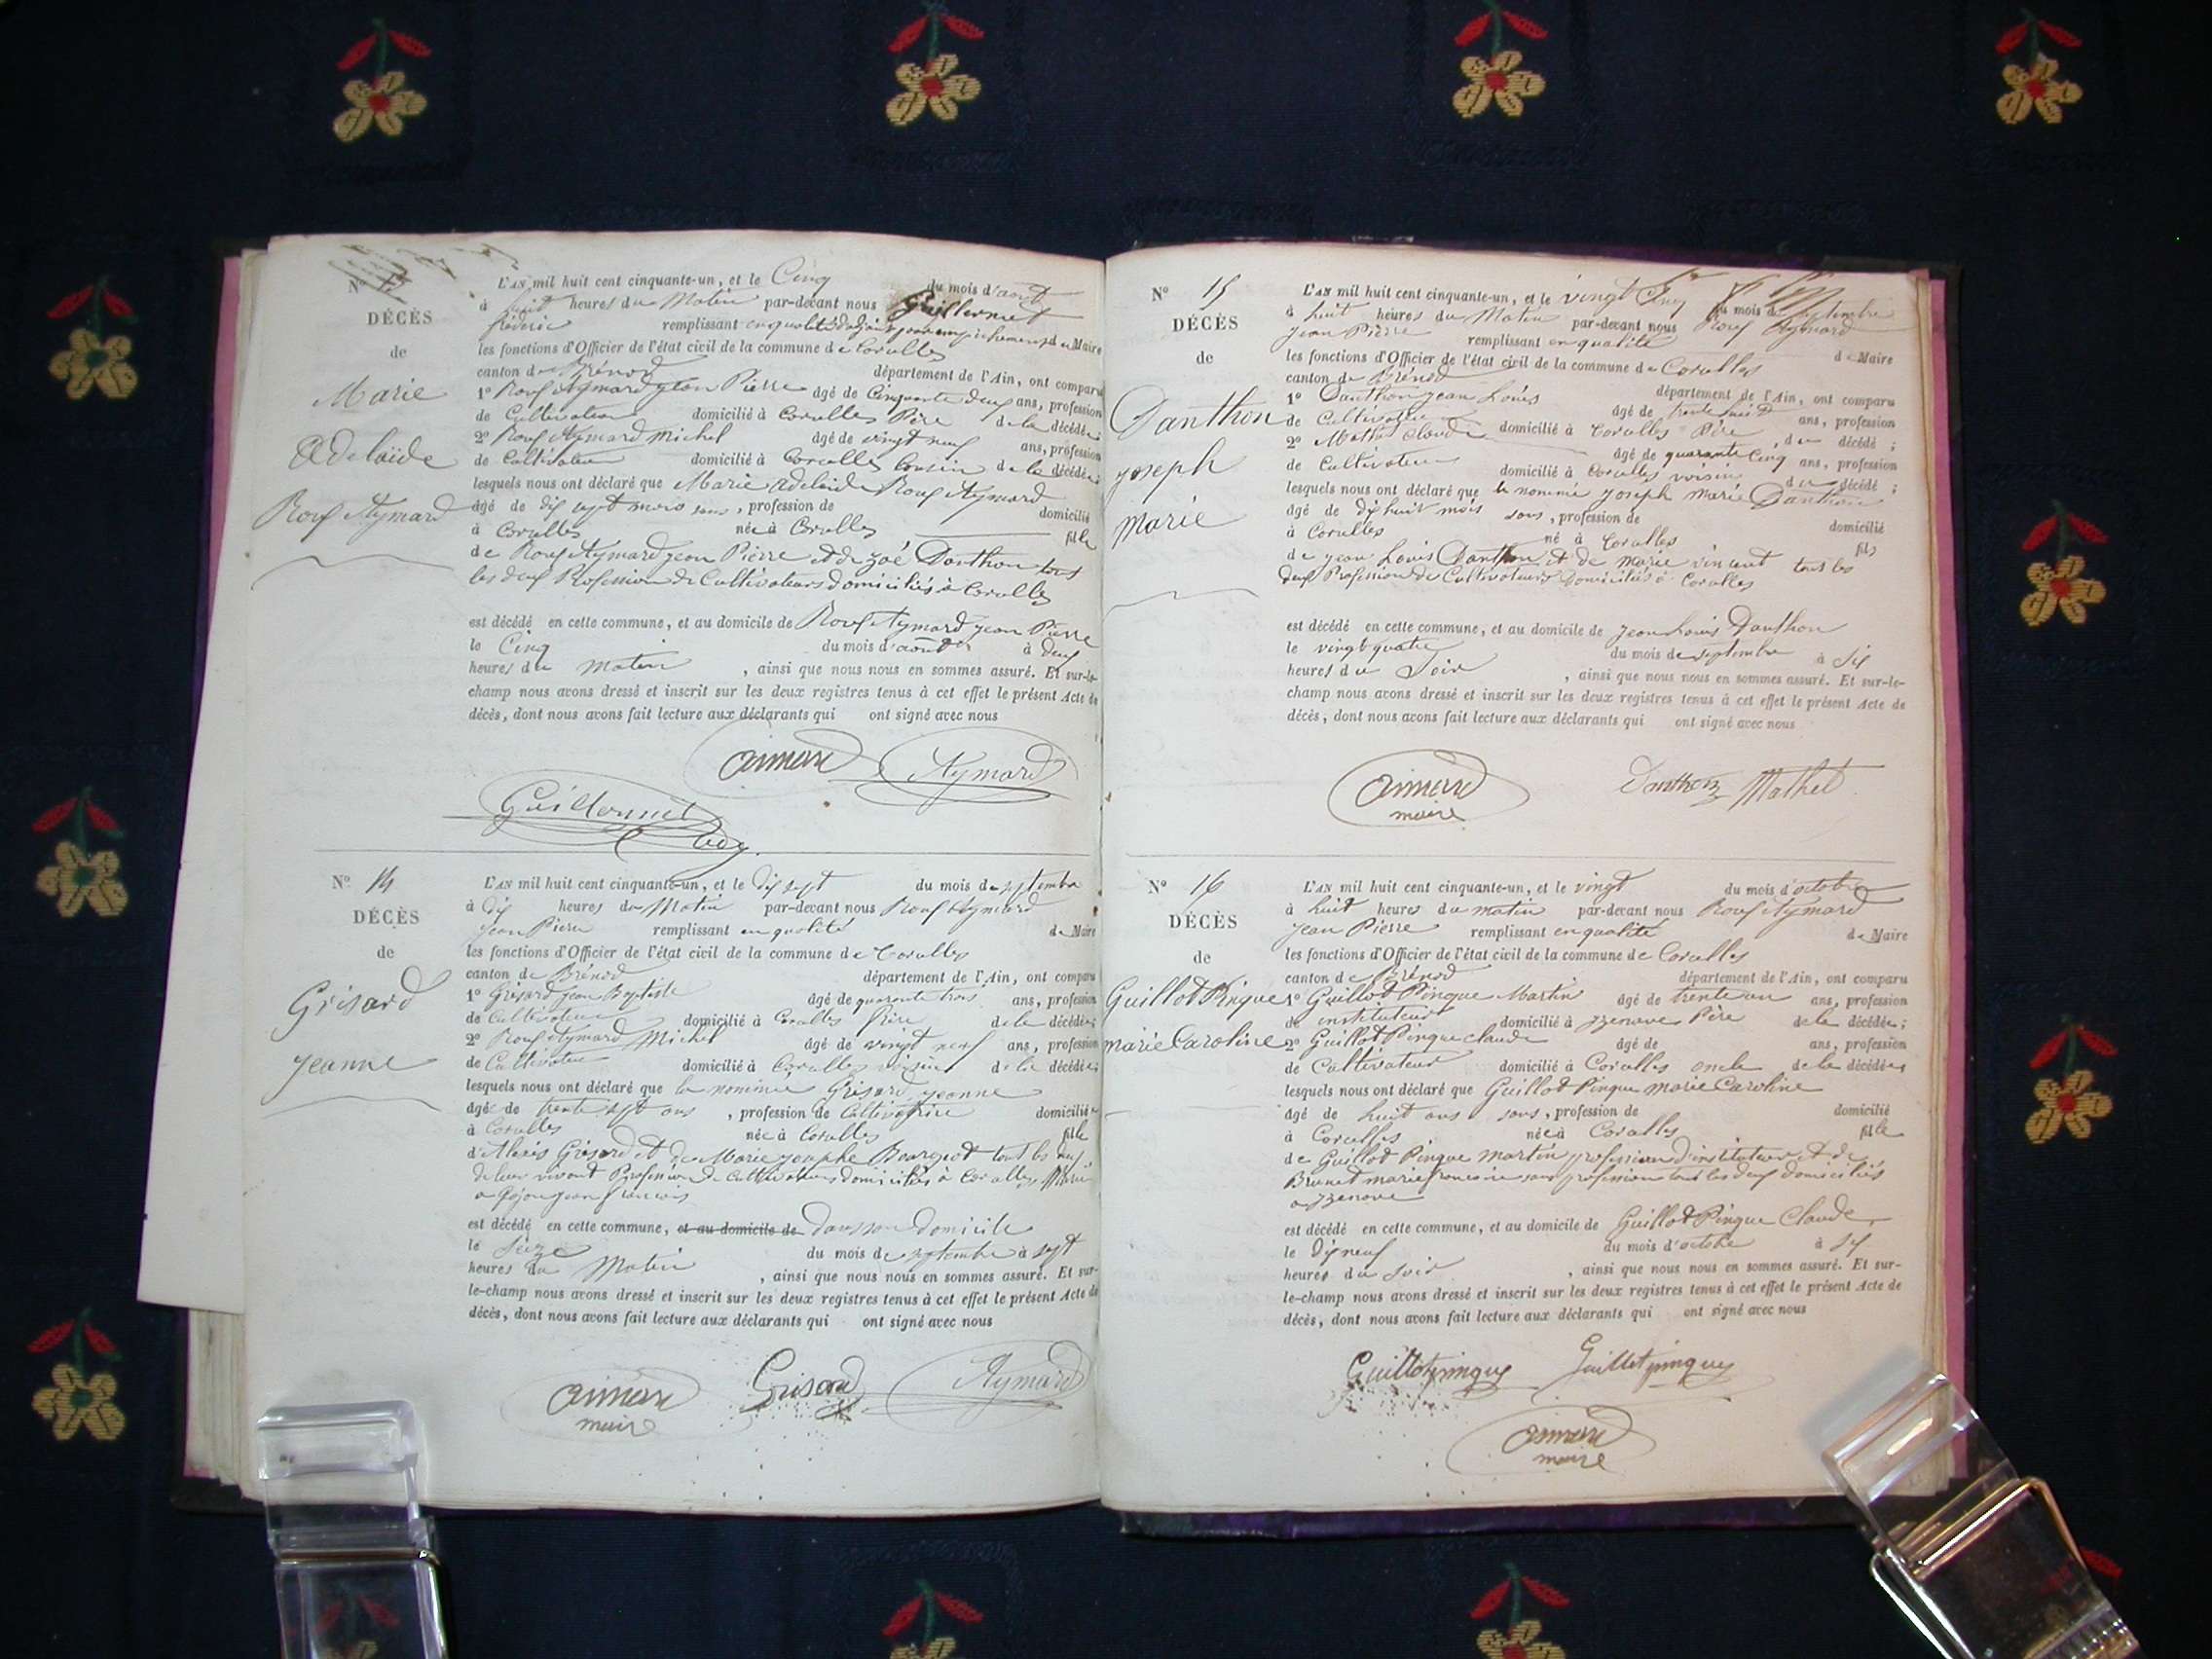 N°
DÉCÈS
de
Marie
Adelaïde
Rouf Aymard
L'AN mil huit cent cinquante-un, et le Cinq du mois d'août
à huit heures du Matin par-devant nous Guillermet
fréderic remplissant en qualité d'adjoint pour empêchement du Maire
les fonctions d'Officier de l'état civil de la commune de Corcelles
canton de Brénod département de l'Ain, ont comparu
1° Rouf Aymard jean Pierre âgé de Cinquante deux ans, profession
de Cultivateur domicilié à Corcelles Père de la décédée
2° Rouf Aymard Michel âgé de vingt neuf ans, profession
de Cultivateur domicilié à Corcelles Cousin de la décédée;
lesquels nous ont déclaré que Marie adelaide Rouf Aymard
âgé de dix sept mois sans, profession de domicilié
à Corcelles née à Corcelles fille
de Rouf Aymard jean Pierre et de Zoé Danthon tous
les deux Profession de Cultivateurs domiciliés à Corcelles
est décédé en cette commune, et au domicile de Rouf Aymard jean Pierre
le Cinq du mois d'août à deux
heures du matin, ainsi que nous nous en sommes assuré. Et sur-le-
champ nous avons dressé et inscrit sur les deux registres tenus à cet effet le présent Acte de
décès, dont nous avons fait lecture aux déclarants qui ont signé avec nous
aimard Aymard
Guillermet
adj.
N° 14
DÉCÈS
de
Grisard
jeanne
L'AN mil huit cent cinquante-un, et le dix sept du mois de septembre
à dix heures du Matin par-devant nous Rouf Aymard
jean Pierre remplissant en qualité de Maire
les fonctions d'Officier de l'état civil de la commune de Corcelles
canton de Brénod département de l'Ain, ont comparu
1° Grisard jean Baptiste âgé de quarante trois ans, profession
de Cultivateur domicilié à Corcelles frère de la décédée;
2° Rouf Aymard Michel âgé de vingt neuf ans, profession
de Cultivateur domicilié à Corcelles voisin de la décédée;
lesquels nous ont déclaré que la nommée Grisard jeanne
âgé de trente sept ans, profession de Cultivatrice domiciliée
à Corcelles née à Corcelles fille
d'Alexis Grisard et de Marie josephe Bourgeot tout les deux
de leur vivant Profession de Cultivateurs domiciliés à Corcelles
a jean francois
est décédé en cette commune, et au domicile de dans son domicile
le Seize du mois de septembre à sept
heures du Matin, ainsi que nous nous en sommes assuré. Et sur-
le-champ nous avons dressé et inscrit sur les deux registres tenus à cet effet le présent Acte de
décès, dont nous avons fait lecture aux déclarants qui ont signé avec nous
aimard Grisard Aymard
maire
N° 15
DÉCÈS
de
Danthon
joseph
marie
L'AN mil huit cent cinquante-un, et le vingt Cinq du mois de septembre
à huit heures du Matin par-devant nous Rouf Aymard
jean Pierre remplissant en qualité de Maire
les fonctions d'Officier de l'état civil de la commune de Corcelles
canton de Brénod département de l'Ain, ont comparu
1° Danthon jean Louis âgé de trente huit ans, profession
de Cultivateur domicilié à Corcelles Père, du décédé;
2° Mathet Claude âgé de quarante Cinq ans, profession
de Cultivateur domicilié à Corcelles voisin du décédé;
lesquels nous ont déclaré que le nommé joseph Marie Danthon
âgé de dix huit mois sans, profession de domicilié
à Corcelles né à Corcelles fils
de jean Louis Danthon et de Marie vincent tous les
deux Profession de Cultivateurs Domiciliés à Corcelles
est décédé en cette commune, et au domicile de jean Louis Danthon
le vingt quatre du mois de septembre à six
heures du Soir, ainsi que nous nous en sommes assuré. Et sur-le-
champ nous avons dressé et inscrit sur les deux registres tenus à cet effet le présent Acte de
décès, dont nous avons fait lecture aux déclarants qui ont signé avec nous
aimard Danthon Mathet
maire
N° 16
DÉCÈS
de
Guillot Pingue
marie Caroline
L'AN mil huit cent cinquante-un, et le vingt du mois d'octobre
à huit heures du matin par-devant nous Rouf Aymard
jean Pierre remplissant en qualité de Maire
les fonctions d'Officier de l'état civil de la commune de Corcelles
canton de Brénod département de l'Ain, ont comparu
1° Guillot Pingue Martin âgé de trente un ans, profession
de instituteur domicilié à izenave Père de la décédée;
2° Guillot Pingue claude âgé de ans, profession
de Cultivateur domicilié à Corcelles oncle de la décédée
lesquels nous ont déclaré que Guillot Pingue marie Caroline
âgé de huit ans sans, profession de domicilié
à Corcelles née à Corcelles fille
de Guillot Pingue martin profession d'instituteur et de
Brunet marie francoise sans profession tout les deux domiciliés
a izenave
est décédé en cette commune, et au domicile de Guillot Pingue Claude
le dix neuf du mois d'octobre à six
heures du soir, ainsi que nous nous en sommes assuré. Et sur-
le-champ nous avons dressé et inscrit sur les deux registres tenus à cet effet le présent Acte de
décès, dont nous avons fait lecture aux déclarants qui ont signé avec nous
Guillotpingue Guillotpingue
aimard
maire